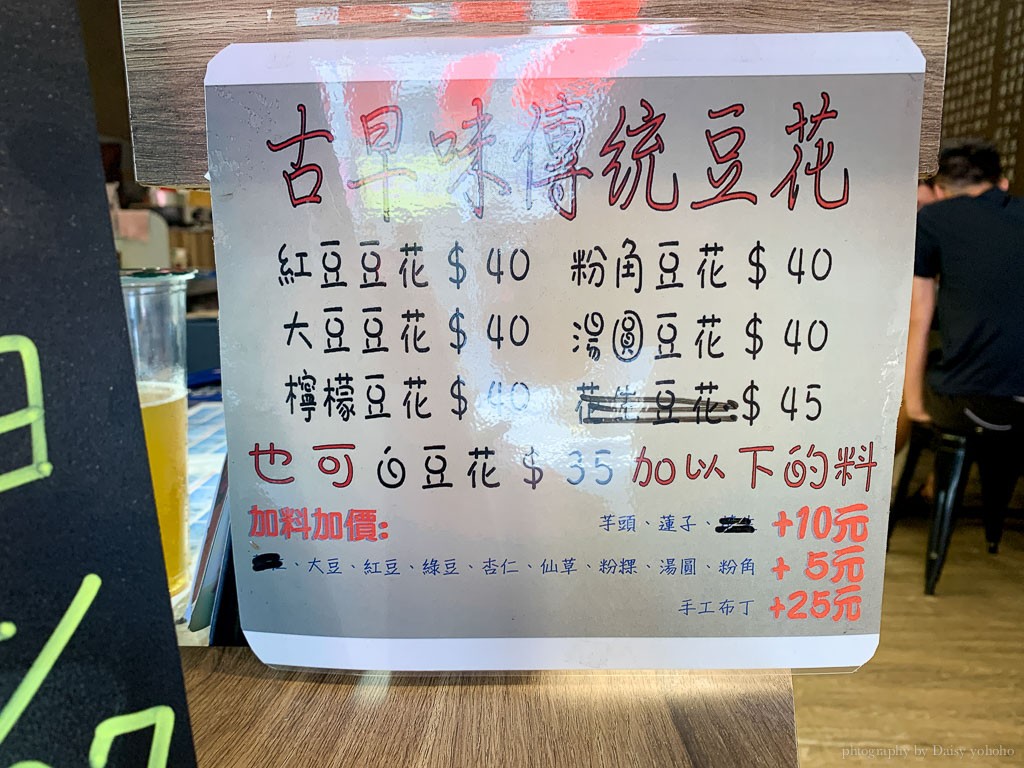 古早味傳統豆花
紅豆豆花 $ 40 粉角豆花 $ 40
大豆豆花 $ 40 湯圓豆花 $ 40
檸檬豆花 $ 40 花生豆花 $ 45
也可白豆花 $ 35 加以下的料
加料加價: 芋頭、蓮子、 +10元
、大豆、紅豆、綠豆、杏仁、仙草、粉粿、湯圓、粉角 + 5元
手工布丁 +25元
photography by Daisy yohoho